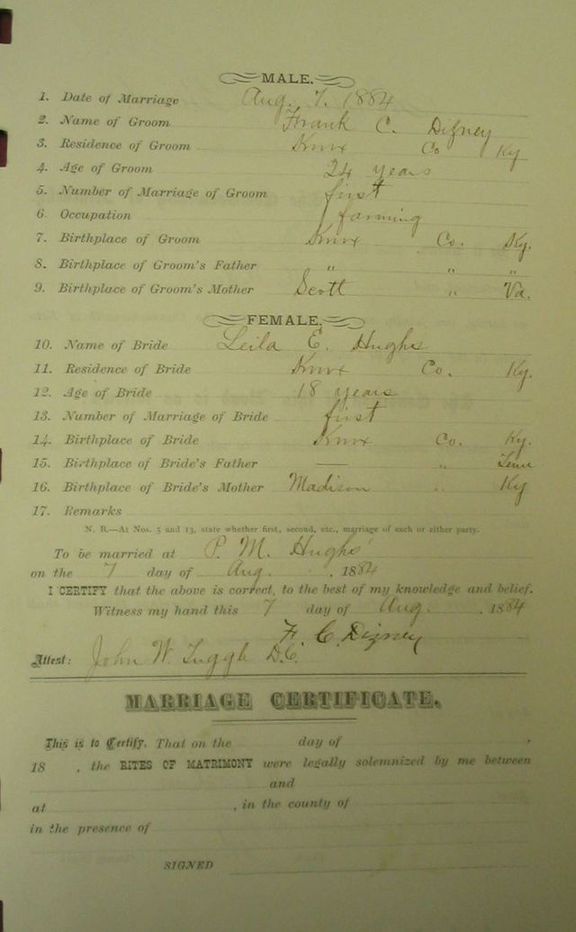 MALE.
1. Date of Marriage Aug. 7. 1884
2. Name of Groom Frank C. Dizney
3. Residence of Groom Knox Co Ky
4. Age of Groom 24 years
5. Number of Marriage of Groom first
6. Occupation farming
7. Birthplace of Groom Knox Co. Ky.
8. Birthplace of Groom's Father " " "
9. Birthplace of Groom's Mother Scott " Va.
FEMALE.
10. Name of Bride Leila E. Hughs
11. Residence of Bride Knox Co. Ky.
12. Age of Bride 18 years
13. Number of Marriage of Bride first
14. Birthplace of Bride Knox Co. Ky.
15. Birthplace of Bride's Father — " Tenn
16. Birthplace of Bride's Mother Madison " Ky
17. Remarks
N. B.—At Nos. 5 and 13, state whether first, second, etc., marriage of each or either party.
To be married at P. M. Hughs'
on the 7 day of Aug. , 1884
I CERTIFY that the above is correct, to the best of my knowledge and belief.
Witness my hand this 7 day of Aug. , 1884
F. C. Dizney
Attest: John W. Tuggle D.C.
MARRIAGE CERTIFICATE.
This is to Certify, That on the day of ,
18 , the RITES OF MATRIMONY were legally solemnized by me between
and
at , in the county of
in the presence of
SIGNED